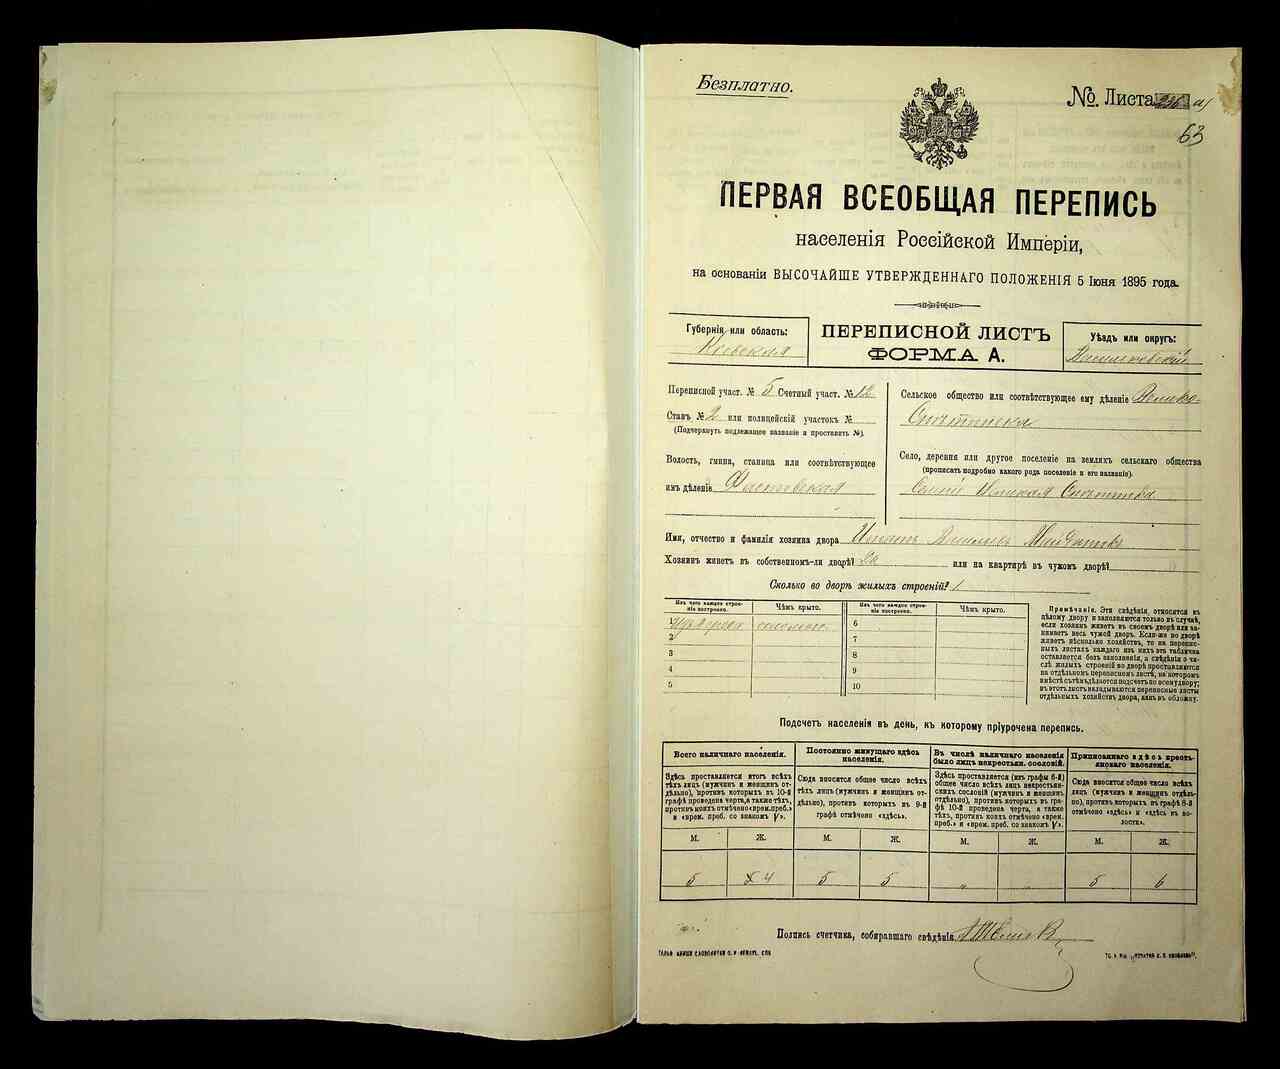 Безплатно.
№. Листа
63
ПЕРВАЯ ВСЕОБЩАЯ ПЕРЕПИСЬ
населенія Россійской Имперіи,
на основаніи ВЫСОЧАЙШЕ УТВЕРЖДЕННАГО ПОЛОЖЕНІЯ 5 Іюня 1895 года.
Губернія или область:
Кіевская
ПЕРЕПИСНОЙ ЛИСТЪ
ФОРМА А.
Уѣздъ или округъ:
Васильковскій
Переписной участ. № 5 Счетный участ. № 12
Станъ № 2 или полицейскій участокъ №
(Подчеркнуть подлежащее названіе и проставить №).
Волость, гмина, станица или соотвѣтствующее
имъ дѣленіе Фастовская
Сельское общество или соотвѣтствующее ему дѣленіе Велико-
Снѣтинское
Село, деревня или другое поселеніе на земляхъ сельскаго общества
(прописать подробно какого рода поселеніе и его названіе).
Великая Снѣтинка
Имя, отчество и фамилія хозяина двора
Хозяинъ живетъ въ собственномъ-ли дворѣ? да или на квартирѣ въ чужомъ дворѣ?
Сколько во дворѣ жилыхъ строеній? 1
Изъ чего каждое строе-
ніе построено.
Чѣмъ крыто.
Изъ чего каждое строе-
ніе построено.
Чѣмъ крыто.
1 соломою 6
2 7
3 8
4 9
5 10
Примѣчаніе. Эти свѣдѣнія относятся къ
цѣлому двору и заполняются только въ случаѣ,
если хозяинъ живетъ въ своемъ дворѣ или за-
нимаетъ весь чужой дворъ. Если-же во дворѣ
живетъ нѣсколько хозяйствъ, то на перепис-
ныхъ листахъ каждаго изъ нихъ эта табличка
оставляется безъ заполненія, а свѣдѣнія о чи-
слѣ жилыхъ строеній во дворѣ проставляются
на отдѣльномъ переписномъ листѣ, на которомъ
вмѣстѣ съ тѣмъ дѣлается подсчетъ по всему двору;
въ этотъ листъ вкладываются переписные листы
отдѣльныхъ хозяйствъ двора, какъ въ обложку.
Подсчетъ населенія въ день, къ которому пріурочена перепись.
Всего наличнаго населенія.
Здѣсь проставляется итогъ всѣхъ
тѣхъ лицъ (мужчинъ и женщинъ от-
дѣльно), противъ которыхъ въ 10-й
графѣ проведена черта, а также тѣхъ,
противъ коихъ отмѣчено «врем. преб.»
и «врем. преб. со знакомъ V».
Постоянно живущаго здѣсь
населенія.
Сюда вносится общее число всѣхъ
тѣхъ лицъ (мужчинъ и женщинъ от-
дѣльно), противъ которыхъ въ 9-й
графѣ отмѣчено «здѣсь».
Въ числѣ наличнаго населенія
было лицъ некрестьян. сословій.
Здѣсь проставляется (изъ графы 6-й)
общее число всѣхъ лицъ некрестьян-
скихъ сословій (мужчинъ и женщинъ
отдѣльно), противъ которыхъ въ гра-
фѣ 10-й проведена черта, а также
тѣхъ, противъ коихъ отмѣчено «врем.
преб.» и «врем. преб. со знакомъ V».
Приписаннаго здѣсь кресть-
янскаго населенія.
Сюда вносится общее число всѣхъ
лицъ (мужчинъ и женщинъ отдѣль-
но), противъ которыхъ въ графѣ 8-й
отмѣчено «здѣсь» и «здѣсь въ во-
лости».
М. Ж. М. Ж. М. Ж. М. Ж.
5 4 5 5 „ „ 5 6
Подпись счетчика, собиравшаго свѣдѣнія